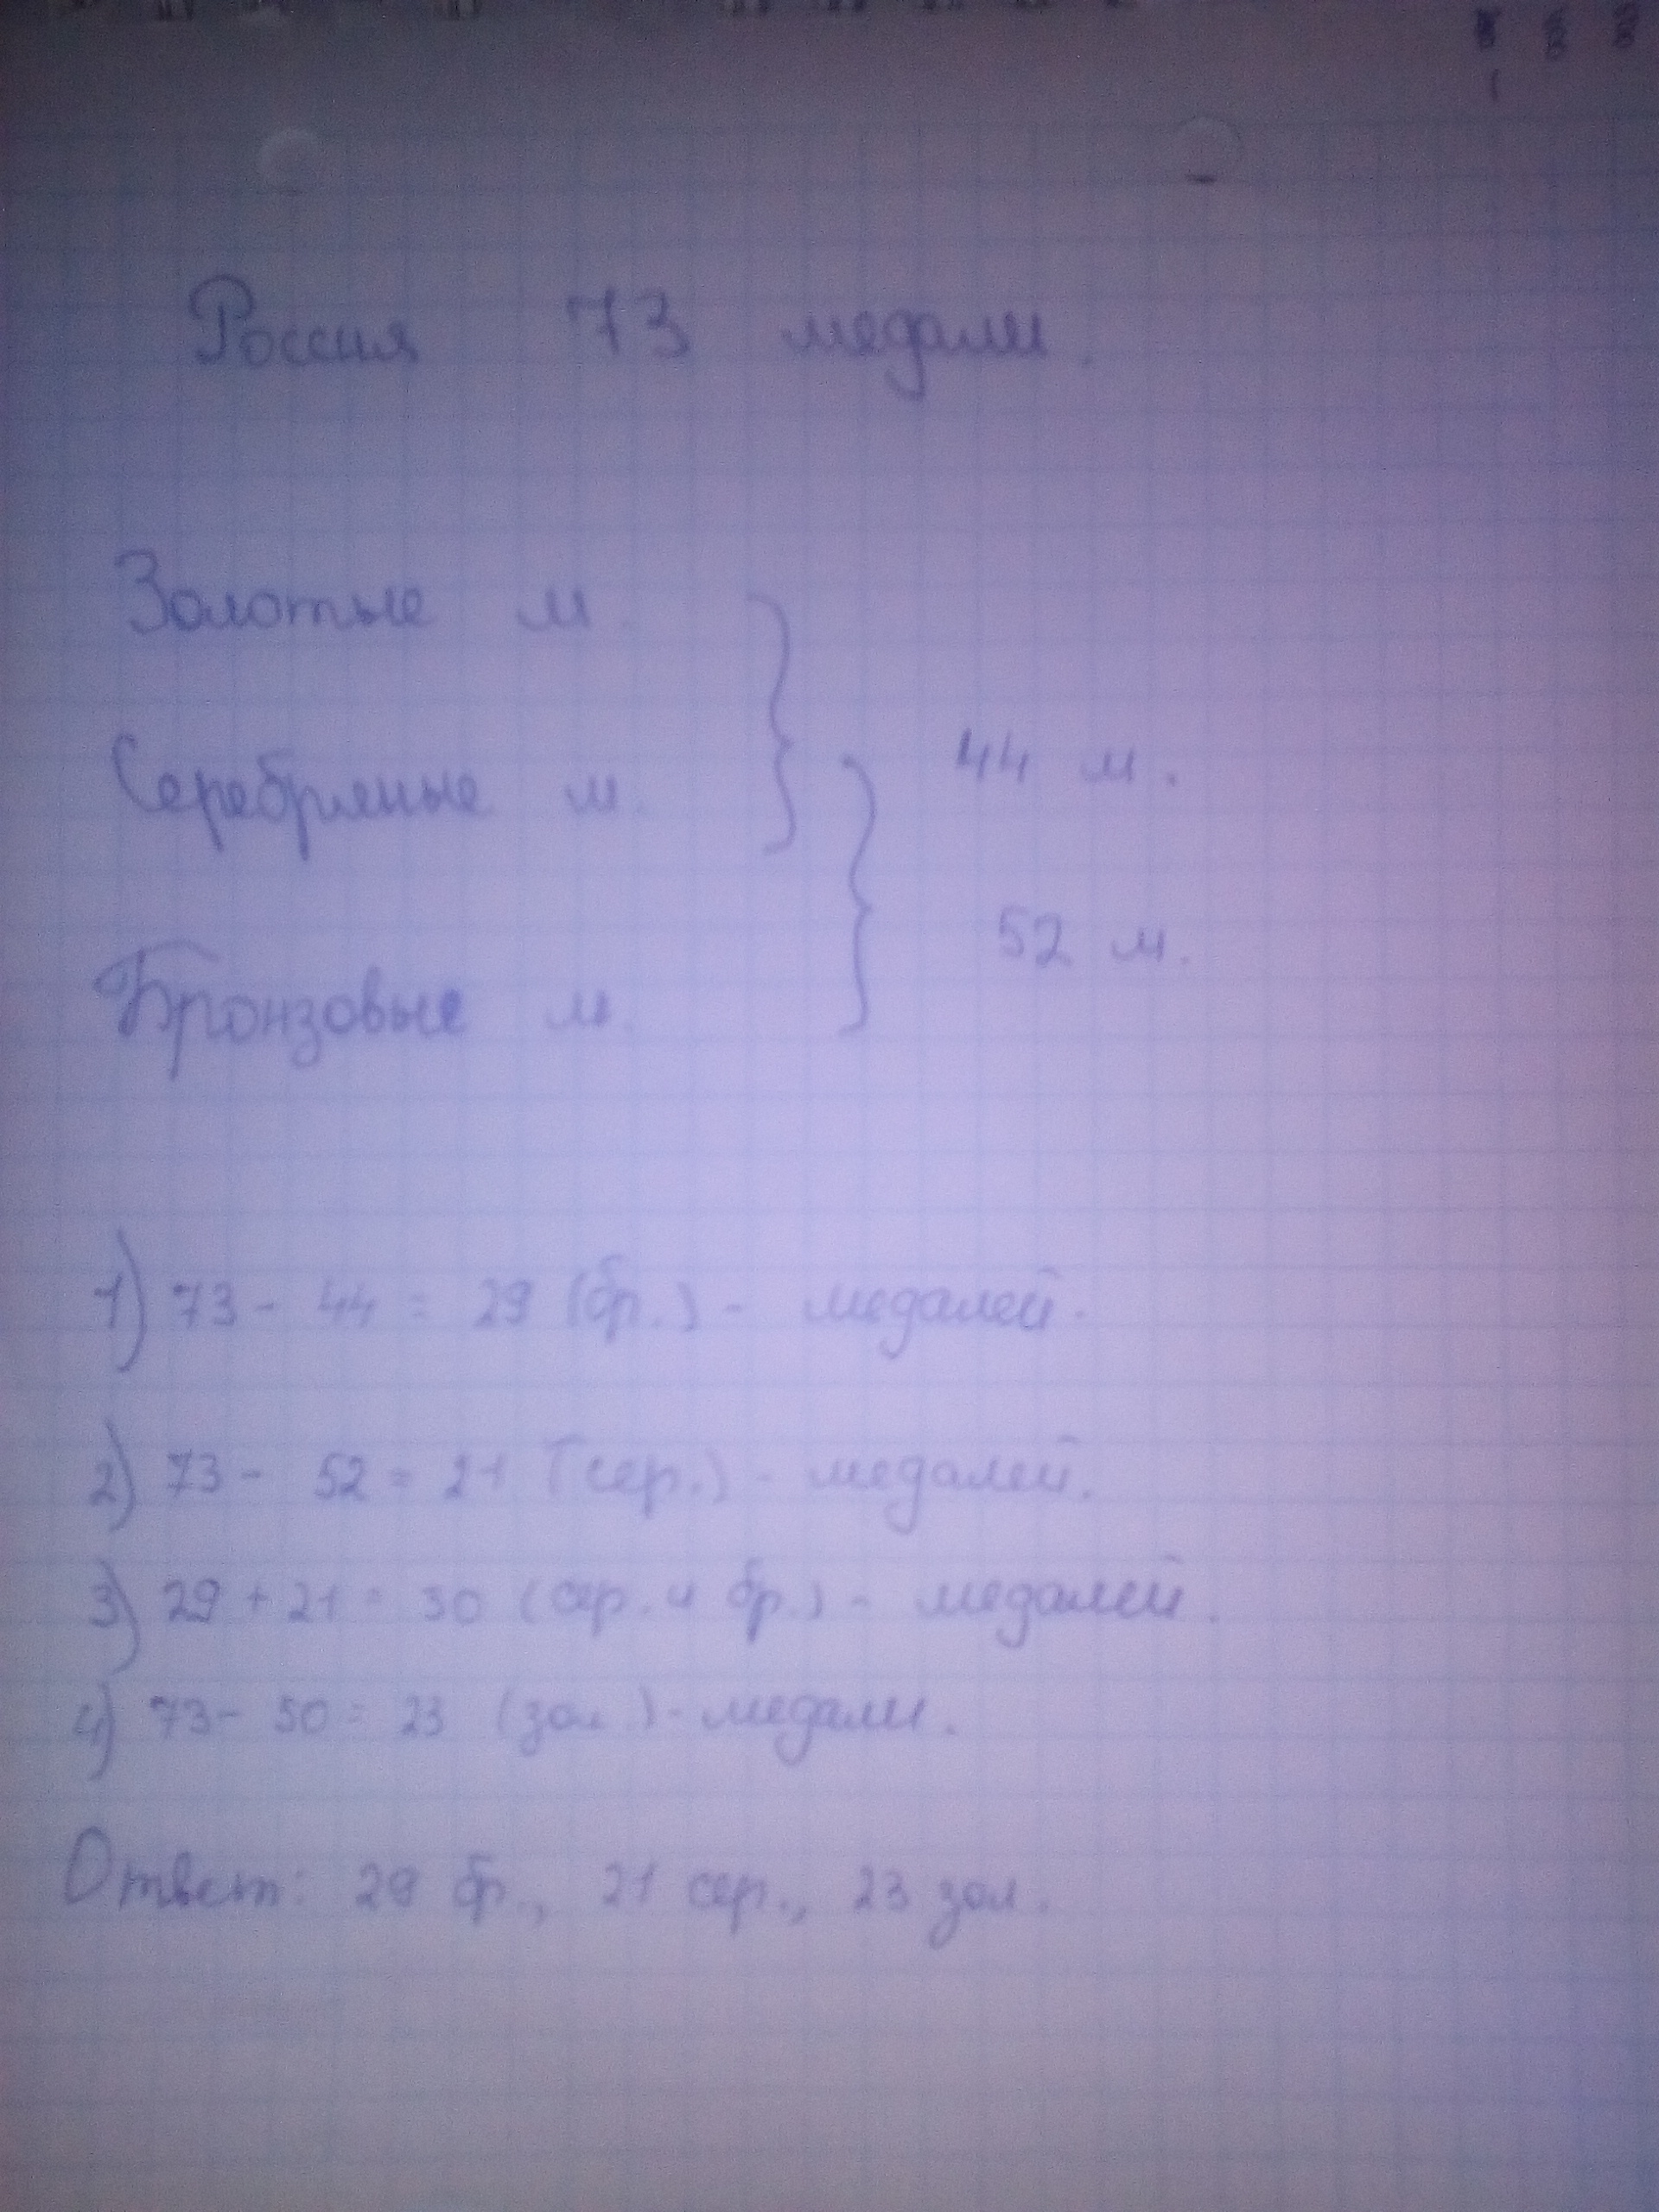 Россия 73 медали.
Золотые м.
Серебряные м.
44 м.
52 м.
Бронзовые м.
1) 73 - 44 = 29 (бр.) - медалей.
2) 73 - 52 = 21 (сер.) - медалей.
3) 29 + 21 = 50 (сер. и бр.) - медалей.
4) 73 - 50 = 23 (зол.) - медали.
Ответ: 29 бр., 21 сер., 23 зол.